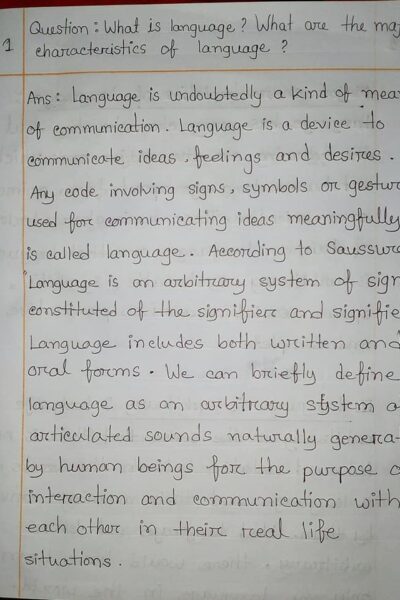 Question : What is language ? What are the maj
1 characteristics of language ?
Ans : Language is undoubtedly a kind of mea
of communication. Language is a device to
communicate ideas, feelings and desires.
Any code involving signs, symbols or gestur
used for communicating ideas meaningfully
is called language. According to Saussure
"Language is an arbitrary system of sign
constituted of the signifier and signifie
Language includes both written and
oral forms. We can briefly define
language as an arbitrary system o
articulated sounds naturally genera-
by human beings for the purpose o
interaction and communication with
each other in their real life
situations.